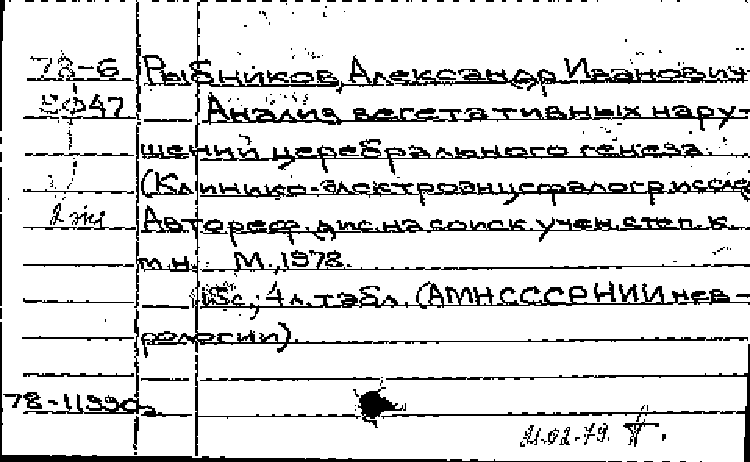 78-6 Рыбников, Александр Иванович
2047 Анализ вегетативных нару-
шений церебрального генеза.
(Клинико-электроэнцефалогр. исслед
Автореф. дис. на соиск. учен. степ. к.
м.н. М., 1978.
18с., 4 л. табл. (АМН СССР НИИ нев-
рологии).
78-11990
21.02.79.